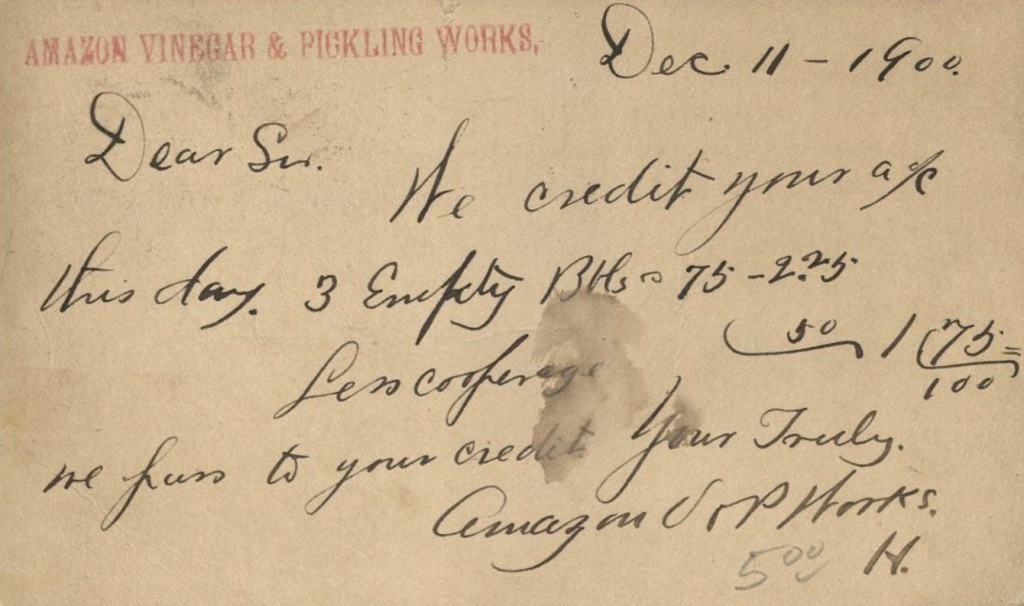 AMAZON VINEGAR & PICKLING WORKS,
Dec 11 - 1900.
Dear Sir.
We credit your a/c
this day. 3 Empty Bbls = 75 - 2.25
Less cooperage 50 1 75 =
100
we pass to your credit Your Truly.
Amazon V & P Works.
500 H.